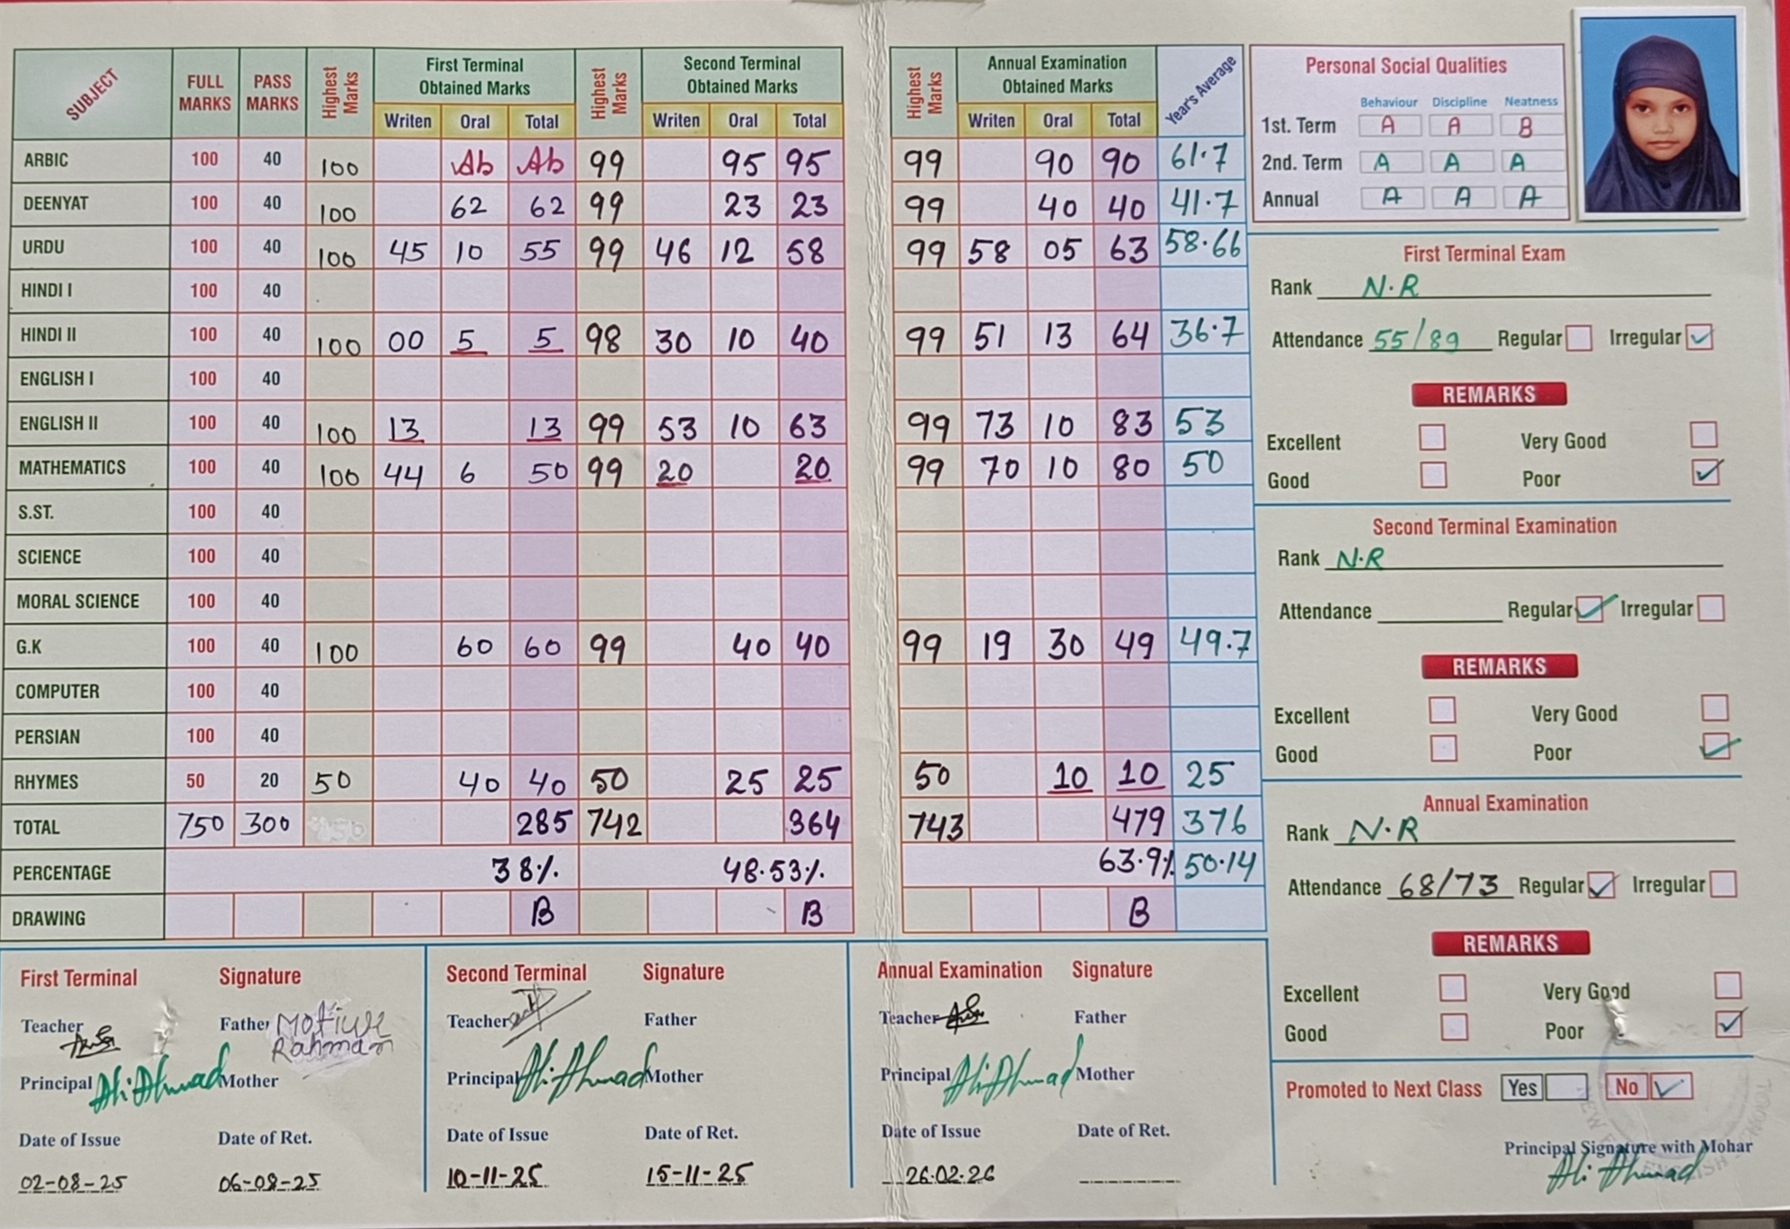 SUBJECT FULL MARKS PASS MARKS Highest Marks First Terminal Obtained Marks Highest Marks Second Terminal Obtained Marks Highest Marks Annual Examination Obtained Marks Year's Average
Writen Oral Total Writen Oral Total Writen Oral Total
ARBIC 100 40 100 Ab Ab 99 95 95 99 90 90 61.7
DEENYAT 100 40 100 62 62 99 23 23 99 40 40 41.7
URDU 100 40 100 45 10 55 99 46 12 58 99 58 05 63 58.66
HINDI I 100 40
HINDI II 100 40 100 00 5 5 98 30 10 40 99 51 13 64 36.7
ENGLISH I 100 40
ENGLISH II 100 40 100 13 13 99 53 10 63 99 73 10 83 53
MATHEMATICS 100 40 100 44 6 50 99 20 20 99 70 10 80 50
S.ST. 100 40
SCIENCE 100 40
MORAL SCIENCE 100 40
G.K 100 40 100 60 60 99 40 40 99 19 30 49 49.7
COMPUTER 100 40
PERSIAN 100 40
RHYMES 50 20 50 40 40 50 25 25 50 10 10 25
TOTAL 750 300 285 742 364 743 479 376
PERCENTAGE 38% 48.53% 63.9% 50.14
DRAWING B B B
First Terminal Signature
Teacher Father Motiur Rahman
Principal Ali Ahmad Mother
Date of Issue Date of Ret.
02-08-25 06-08-25
Second Terminal Signature
Teacher Father
Principal Ali Ahmad Mother
Date of Issue Date of Ret.
10-11-25 15-11-25
Annual Examination Signature
Teacher Father
Principal Ali Ahmad Mother
Date of Issue Date of Ret.
26.02.26
Personal Social Qualities
Behaviour Discipline Neatness
1st. Term A A B
2nd. Term A A A
Annual A A A
First Terminal Exam
Rank N.R
Attendance 55/89 Regular Irregular ✓
REMARKS
Excellent Very Good
Good Poor ✓
Second Terminal Examination
Rank N.R
Attendance Regular ✓ Irregular
REMARKS
Excellent Very Good
Good Poor ✓
Annual Examination
Rank N.R
Attendance 68/73 Regular ✓ Irregular
REMARKS
Excellent Very Good
Good Poor ✓
Promoted to Next Class Yes No ✓
Principal Signature with Mohar
Ali Ahmad